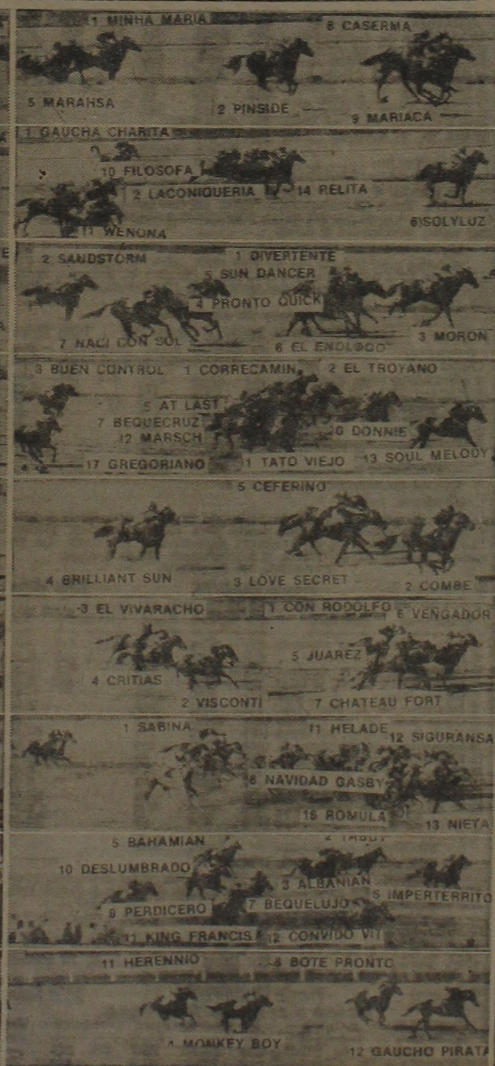 1 MINHA MARIA
8 CASERMA
5 MARAHSA
2 PINSIDE
9 MARIACA
1 GAUCHA CHARITA
10 FILOSOFA
2 LACONIQUERIA
14 RELITA
6 SOLYLUZ
11 WENONA
2 SANDSTORM
1 DIVERTENTE
5 SUN DANCER
4 PRONTO QUICK
7 NACI CON SOL
6 EL ENOLOGO
3 MORON
3 BUEN CONTROL
1 CORRECAMIN
2 EL TROYANO
5 AT LAST
7 BEQUECRUZ
12 MARSCH
DONNIE
17 GREGORIANO
11 TATO VIEJO
13 SOUL MELODY
5 CEFERINO
4 BRILLIANT SUN
3 LOVE SECRET
2 COMBE
3 EL VIVARACHO
1 CON RODOLFO
6 VENGADOR
5 JUAREZ
4 CRITIAS
2 VISCONTI
7 CHATEAU FORT
1 SABINA
11 HELADE
12 SIGURANSA
6 NAVIDAD GASBY
15 ROMULA
13 NIETA
5 BAHAMIAN
10 DESLUMBRADO
3 ALBANIAN
IMPERTERRITO
9 PERDICERO
7 BEQUELUJO
11 KING FRANCIS
12 CONVIDO VIT
11 HERENNIO
BOTE PRONTO
MONKEY BOY
12 GAUCHO PIRATA